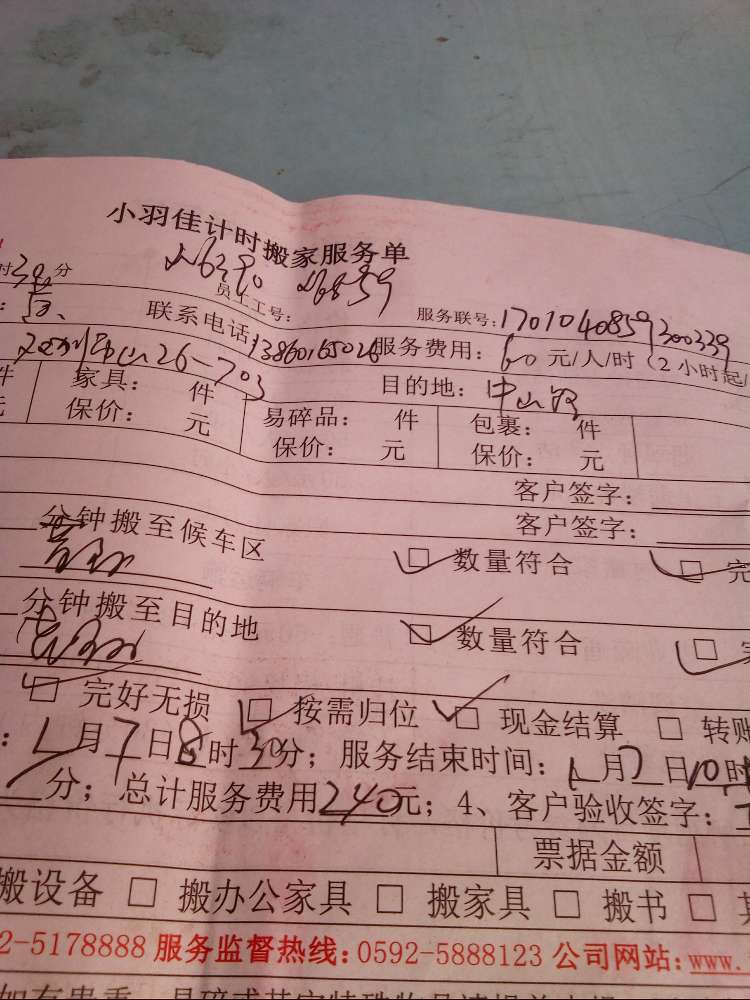 小羽佳计时搬家服务单
时30分
员工工号:
服务联号:1701040859300339
联系电话:13860165026 服务费用:60元/人/时(2小时起/
26-703 目的地:中山路
件 家具: 件 易碎品: 件 包裹: 件
元 保价: 元 保价: 元 保价: 元
客户签字:
客户签字:
分钟搬至候车区 ☑ 数量符合 ☑ 完
分钟搬至目的地 ☑ 数量符合 ☑
☑ 完好无损 ☑ 按需归位 ☑ 现金结算 □ 转账
: 1月7日8时30分;服务结束时间:1月7日10时
分;总计服务费用240元;4、客户验收签字:
票据金额
搬设备 □ 搬办公家具 □ 搬家具 □ 搬书 □ 其
2-5178888 服务监督热线:0592-5888123 公司网站:www.
如有贵重、易碎或其它特殊物品请提前